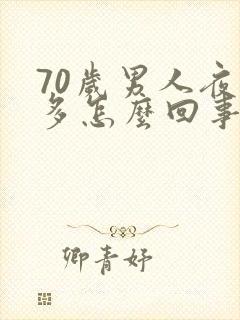 70歲男人夜
多怎麼回事
卿青妤